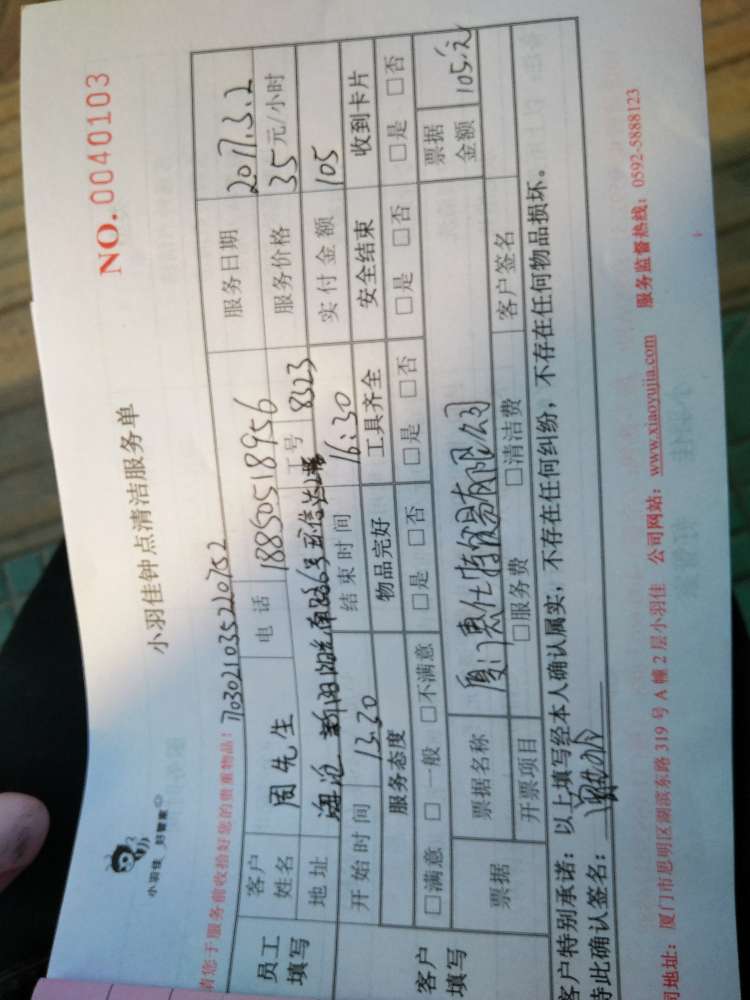 小羽佳 好管家
小羽佳钟点清洁服务单
NO.0040103
请您于服务前收拾好您的贵重物品!
17030210352210752
员工填写
客户姓名 周先生 电话 18850518956 服务日期 2017.3.2
地址 工号 8323 服务价格 35元/小时
开始时间 13:30 结束时间 16:30 实付金额 105
客户填写
服务态度 物品完好 工具齐全 安全结束 收到卡片
□满意 □一般 □不满意 □是 □否 □是 □否 □是 □否 □是 □否
票据 票据名称 厦门惠仕特贸易有限公司 票据金额 105元
开票项目 □服务费 □清洁费 客户签名
客户特别承诺:以上填写经本人确认属实,不存在任何纠纷,不存在任何物品损坏。
特此确认签名:
司地址:厦门市思明区湖滨东路319号A幢2层小羽佳 公司网站:www.xiaoyujia.com 服务监督热线:0592-5888123